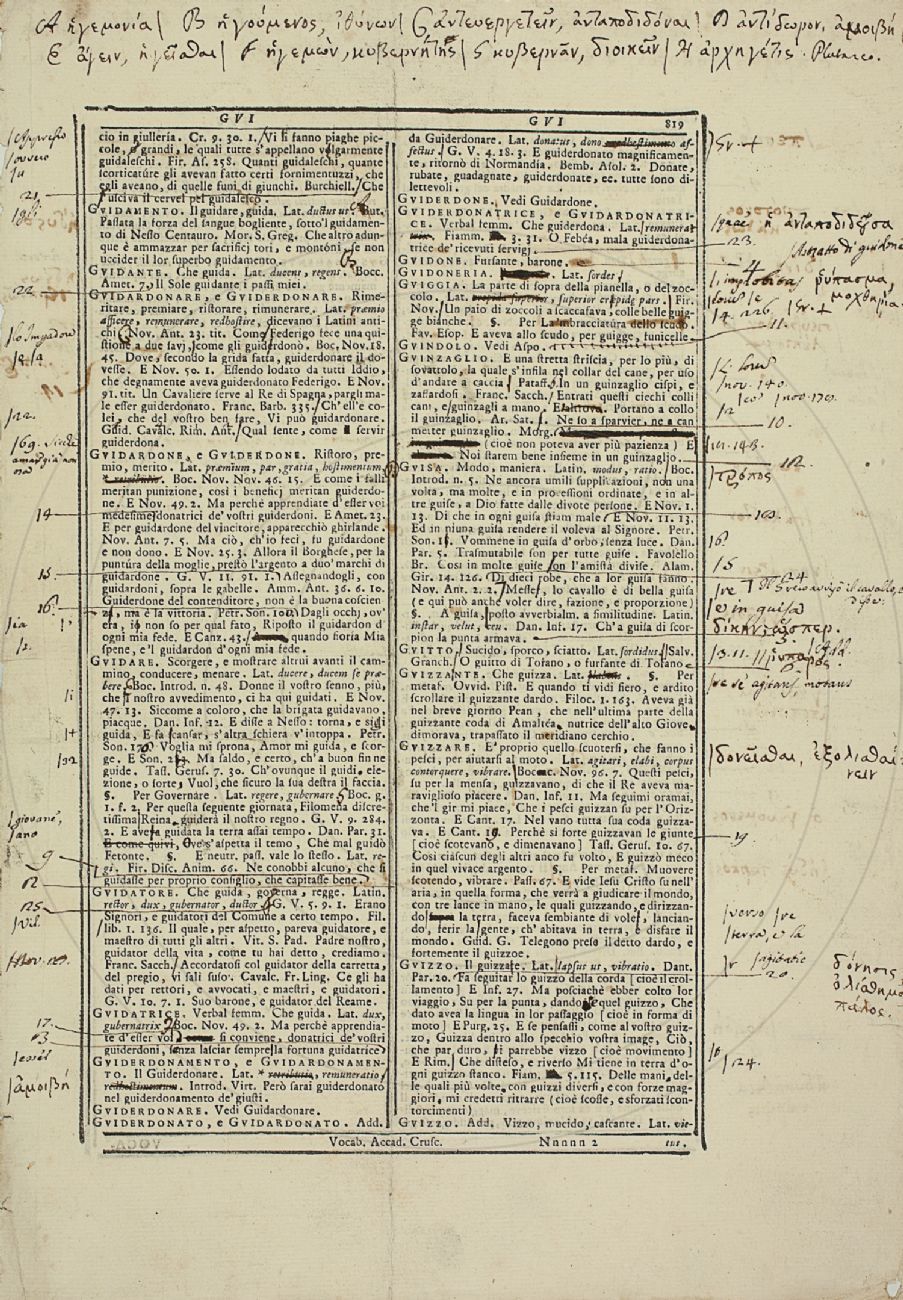 A ἡγεμονία/ B ἡγούμενος, ἰθύνων/ C ἀντευεργετεῖν, ἀνταποδιδόναι/ D ἀντίδωρον, ἀμοιβή/
E ἄγειν, ἡγεῖσθαι/ F ἡγεμών, κυβερνήτης/ G κυβερνᾶν, διοικεῖν/ H ἀρχηγέτις. Plutarco.
GVI
cio in giulleria. Cr. 9. 30. 1. Vi si fanno piaghe pic-
cole, o grandi, le quali tutte s'appellano volgarmente
guidaleschi. Fir. As. 258. Quanti guidaleschi, quante
scorticature gli avevan fatto certi fornimentuzzi, che
egli aveano, di quelle funi di giunchi. Burchiell. Che
l'usciva il cervel pel guidalesco.
GVIDAMENTO. Il guidare, guida. Lat. ductus us.
Passata la forza del sangue bogliente, sotto'l guidamen-
to di Nesso Centauro. Mor. S. Greg. Che altro adun-
que è ammazzar per sacrifici tori, e montoni, se non
uccider il lor superbo guidamento.
GVIDANTE. Che guida. Lat. ducens, regens. Bocc.
Amet. 7. Il Sole guidante i passi miei.
GVIDARDONARE, e GVIDERDONARE. Rime-
ritare, premiare, ristorare, rimunerare. Lat. præmio
afficere, remunerare, redhostire, dicevano i Latini anti-
chi. Nov. Ant. 23. tit. Come Federigo fece una qui-
stione a due savj, come gli guiderdonò. Boc. Nov. 18.
45. Dove, secondo la grida fatta, guiderdonare il do-
vesse. E Nov. 50. 1. Essendo lodato da tutti Iddio,
che degnamente aveva guiderdonato Federigo. E Nov.
91. tit. Un Cavaliere serve al Re di Spagna, pargli ma-
le esser guiderdonato. Franc. Barb. 335. Ch'ell'e co-
lei, che del vostro ben fare, Vi può guidardonare.
Guid. Cavalc. Rim. Ant. Qual sente, come servir
guiderdona.
GVIDARDONE, e GVIDERDONE. Ristoro, pre-
mio, merito. Lat. præmium, par, gratia, hostimentum,
Boc. Nov. Nov. 46. 15. E come i falli
meritan punizione, così i beneficj meritan guiderdo-
ne. E Nov. 49. 2. Ma perchè apprendiate d'esser voi
medesime donatrici de' vostri guiderdoni. E Amet. 23.
E per guidardone del vincitore, apparecchiò ghirlande.
Nov. Ant. 7. 5. Ma ciò, ch'io feci, fu guidardone
e non dono. E Nov. 25. 3. Allora il Borghese, per la
puntura della moglie, prestò l'argento a duo' marchi di
guidardone. G. V. 11. 91. 1. Assegnandogli, con
guidardoni, sopra le gabelle. Amm. Ant. 36. 6. 10.
Guiderdone del contenditore, non è la buona coscien
za, ma è la vittoria. Petr. Son. 102. Dagli occhi, ov'
era, io non so per qual fato, Riposto il guidardon d'
ogni mia fede. E Canz. 43. quando fioria Mia
spene, e'l guidardon d'ogni mia fede.
GVIDARE. Scorgere, e mostrare altrui avanti il cam-
mino, conducere, menare. Lat. ducere, ducem se præ-
bere. Boc. Introd. n. 48. Donne il vostro senno, più,
che il nostro avvedimento, ci ha qui guidati. E Nov.
47. 13. Siccome a coloro, che la brigata guidavano,
piacque. Dan. Inf. 12. E disse a Nesso: torna, e sì gli
guida, E fa scansar, s'altra schiera v'intoppa. Petr.
Son. 176. Voglia mi sprona, Amor mi guida, e scor-
ge. E Son. Ma saldo, e certo, ch'a buon fin ne
guide. Tass. Gerus. 7. 30. Ch'ovunque il guidi, ele-
zione, o sorte, Vuol, che sicuro la sua destra il faccia.
§. Per Governare. Lat. regere, gubernare. Boc. g.
1. f. 2. Per questa seguente giornata, Filomena discre-
tissima Reina guiderà il nostro regno. G. V. 9. 284.
2. E aveva guidata la terra assai tempo. Dan. Par. 31.
E come quivi, Ove s'aspetta il temo, Che mal guidò
Fetonte. §. E neutr. pass. vale lo stesso. Lat. re-
gi. Fir. Disc. Anim. 66. Ne conobbi alcuno, che si
guidasse per proprio consiglio, che capitasse bene.
GVIDATORE. Che guida governa, regge. Latin.
rector, dux, gubernator, ductor. G. V. 5. 9. 1. Erano
Signori, e guidatori del Comune a certo tempo. Fil.
lib. 1. 136. Il quale, per aspetto, pareva guidatore, e
maestro di tutti gli altri. Vit. S. Pad. Padre nostro,
guidator della vita, come tu hai detto, crediamo.
Franc. Sacch. Accordatosi col guidator della carretta,
del pregio, vi salì suso. Cavalc. Fr. Ling. Ce gli ha
dati per rettori, e avvocati, e maestri, e guidatori.
G. V. 10. 7. 1. Suo barone, e guidator del Reame.
GVIDATRICE. Verbal femm. Che guida. Lat. dux,
gubernatrix. Boc. Nov. 49. 2. Ma perchè apprendia-
te d'esser voi si conviene, donatrici de'vostri
guiderdoni, senza lasciar sempre la fortuna guidatrice
GVIDERDONAMENTO, e GVIDARDONAMEN-
TO. Il Guiderdonare. Lat. * retributio, remuneratio,
redhostimentum. Introd. Virt. Però sarai guiderdonato
nel guiderdonamento de'giusti.
GVIDERDONARE. Vedi Guidardonare.
GVIDERDONATO, e GVIDARDONATO. Add.
GVI 819
da Guiderdonare. Lat. donatus, dono af-
fectus. G. V. 4. 18. 3. E guiderdonato magnificamen-
te, ritornò in Normandìa. Bemb. Asol. 2. Donate,
rubate, guadagnate, guiderdonate, ec. tutte sono di-
lettevoli.
GVIDERDONE. Vedi Guidardone.
GVIDERDONATRICE, e GVIDARDONATRI-
CE. Verbal femm. Che guiderdona. Lat. remunera
Fiamm. 3. 31. O Febéa, mala guiderdona-
trice de' ricevuti servigj.
GVIDONE. Furfante, barone.
GVIDONERIA. Lat. sordes.
GVIGGIA. La parte di sopra della pianella, o del zoc-
colo. Lat. crepidæ superior, superior crepidæ pars. Fir.
Nov. Un paio di zoccoli a scaccafava, colle belle guig-
ge bianche. §. Per La imbracciatura dello scudo.
Fav. Esop. E aveva allo scudo, per guigge, funicelle.
GVINDOLO. Vedi Aspo.
GVINZAGLIO. E una stretta striscia, per lo più, di
sovattolo, la quale s'infila nel collar del cane, per uso
d'andare a caccia. Pataff. In un guinzaglio cispi, e
zaffardosi. Franc. Sacch. Entrati questi ciechi colli
cani, e guinzagli a mano. Portano a collo
il guinzaglio. Ar. Sat. 1. Ne so a sparvier, ne a can
metter guinzaglio. Morg.
(cioè non poteva aver più pazienza) E
Noi starem bene insieme in un guinzaglio.
GVISA. Modo, maniera. Latin. modus, ratio. Boc.
Introd. n. 5. Ne ancora umili supplicazioni, non una
volta, ma molte, e in processioni ordinate, e in al-
tre guise, a Dio fatte dalle divote persone. E Nov. 1.
13. Di che in ogni guisa stiam male. E Nov. 11. 13.
Ed in niuna guisa rendere il voleva al Signore. Petr.
Son. 1. Vommene in guisa d'orbo, senza luce. Dan.
Par. 5. Trasmutabile son per tutte guise. Favolello
Br. Così in molte guise, son l'amistà divise. Alam.
Gir. 14. 126. Di dieci robe, che a lor guisa fanno.
Nov. Ant. 2. 2. Messer, lo cavallo è di bella guisa
(e qui può anche voler dire, fazione, e proporzione)
§. A guisa, posto avverbialm. a similitudine. Latin.
instar, velut, ceu. Dan. Inf. 17. Ch'a guisa di scor-
pion la punta armava.
GVITTO. Sucido, sporco, sciatto. Lat. sordidus. Salv.
Granch. O guitto di Tofano, o furfante di Tofano.
GVIZZANTE. Che guizza. Lat. §. Per
metaf. Ovvid. Pist. E quando ti vidi fiero, e ardito
scrollare il guizzante dardo. Filoc. 1. 163. Aveva già
nel breve giorno Pean, che nell'ultima parte della
guizzante coda di Amaltéa, nutrice dell'alto Giove
dimorava, trapassato il meridiano cerchio.
GVIZZARE. E' proprio quello scuotersi, che fanno i
pesci, per aiutarsi al moto. Lat. agitari, elabi, corpus
contorquere, vibrare. Bocc. Nov. 96. 7. Questi pesci,
su per la mensa, guizzavano, di che il Re aveva ma-
raviglioso piacere. Dan. Inf. 11. Ma seguimi oramai,
che'l gir mi piace, Che i pesci guizzan su per l'Oriz-
zonta. E Cant. 17. Nel vano tutta sua coda guizza-
va. E Cant. 19. Perchè sì forte guizzavan le giunte
[cioè scotevano, e dimenavano] Tass. Gerus. 10. 67.
Così ciascun degli altri anco fu volto, E guizzò meco
in quel vivace argento. §. Per metaf. Muovere
scotendo, vibrare. Pass. 67. E vide Iesu Cristo su nell'
aria, in quella forma, che verrà a giudicare il mondo,
con tre lance in mano, le quali guizzando, e dirizzan-
do la terra, faceva sembiante di voler, lancian-
do, ferir la gente, ch'abitava in terra, e disfare il
mondo. Guid. G. Telegono preso il detto dardo, e
fortemente il guizzoe.
GVIZZO. Il guizzare. Lat. lapsus us, vibratio. Dant.
Par. 20. Fa seguitar lo guizzo della corda [cioè il crol-
lamento] E Inf. 27. Ma posciachè ebber colto lor
viaggio, Su per la punta, dando quel guizzo, Che
dato avea la lingua in lor passaggio [cioè in forma di
moto] E Purg. 25. E se pensassi, come al vostro guiz-
zo, Guizza dentro allo specchio vostra image, Ciò,
che par duro, ti parrebbe vizzo [cioè movimento]
E Rim. Che disteso, e riverso Mi tiene in terra d'o-
gni guizzo stanco. Fiam. 5. 115. Delle mani, del-
le quali più volte, con guizzi diversi, e con forze mag-
giori, mi credetti ritrarre (cioè scosse, e sforzati scon-
torcimenti)
GVIZZO. Add. Vizzo, mucido, cascante. Lat. vie-
Vocab. Accad. Crusc. Nnnnn 2 tus.
21.
22
14
15
16
9
62
125
17.
63
/ἀμοιβή
/Gr. +
/græc. ἡ ἀνταποδιδοῦσα
23.
ῥύπασμα,
μοχθηρία
11.
10.
112
/τρόπος
103
16
15
/e in guisa
δίκην, ὥσπερ.
/3. 11. // ῥυπαρός.
/δονεῖσθαι, ἐξολισθαί-
νειν
19.
/verso /re
/terra, e la
20.
δόνησις
ὀλίσθημα
πάλος.
/24.